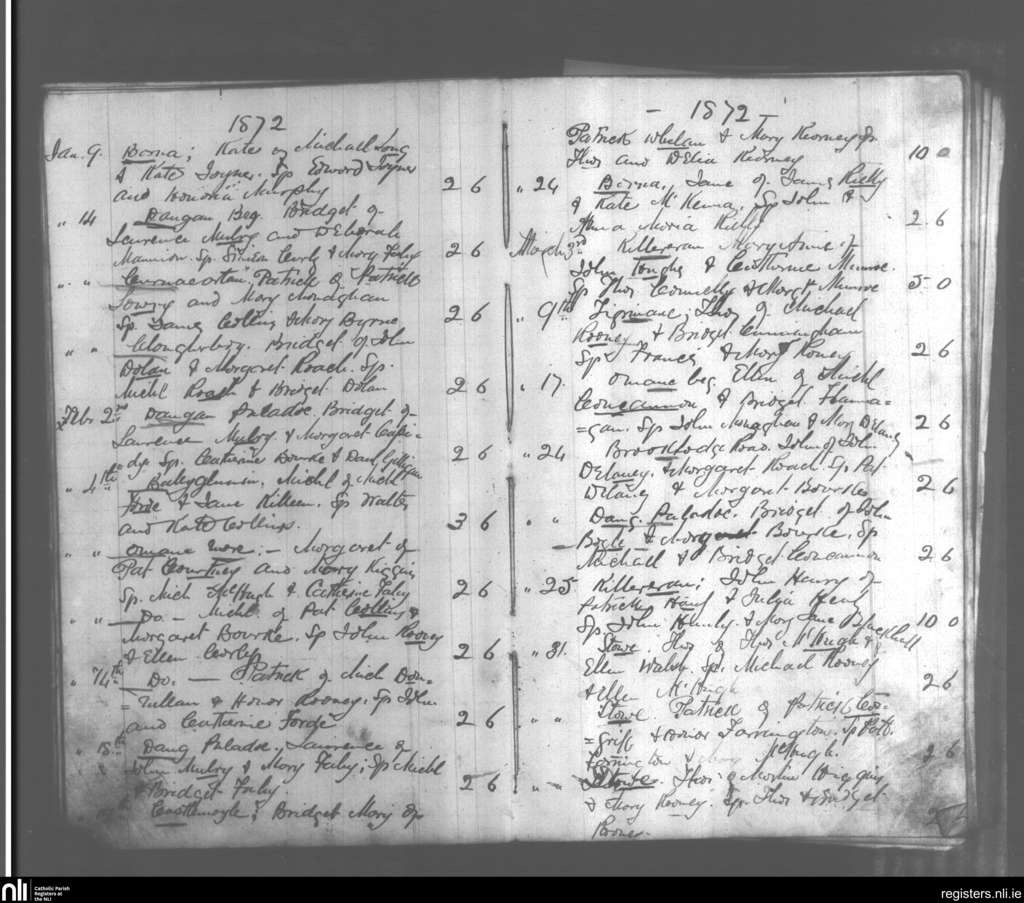 1872
Jan. 9. Borna; Kate of Michael Long
& Kate Joyner. Sp Edward Joyner
and Honoria Murphy 2 6
" 14 Dangan Beg. Bridget of
Laurence Mulry and Deborah
Mannion. Sp. Simion Cerly & Mary Fahy 2 6
" " Patrick of Patrick
Lowry and Mary Monaghan
Sp. James Collins & Mary Byrne 2 6
" " Bridget of John
Dolan & Margaret Roach. Sp.
Michl Roach & Bridget Dolan 2 6
Febr. 2nd Dangan Paladoe. Bridget of
Laurence Mulry & Margaret Cassi=
dy. Sp. Catherine Bourke & Danl Gilligan 2 6
" 4th Ballyglunin. Michl of Michl
Forde & Jane Killeen. Sp Walter
and Kate Collins. 3 6
" " Omane more. – Margaret of
Pat Courtney and Mary Higgins
Sp. Mich McHugh & Catherine Fahy 2 6
" " Do. – Michl of Pat Collins &
Margaret Bourke. Sp John Rooney
& Ellen Cerly 2 6
" 14th Do. – Patrick of Mich Don=
=nellan & Honor Rooney. Sp John
and Catherine Forde 2 6
" 18th Dang Paladoe. Laurence of
John Mulry & Mary Fahy; Sp Michl
& Bridget Fahy. 2 6
Castlemoyle; Bridget Mary of
– 1872 –
Patrick Whelan & Mary Kearney Sp.
Thos and Delia Kearney 10 0
" 24 Borna. Jane of James Rielly
& Kate McKenna, Sp John &
Anna Maria Rielly 2 6
March 3rd Killereran Mary Anne of
John Toughe & Catherine Munroe.
Sp Thos Connelly & Margt Munroe 5 0
" 9th Thos of Michael
Rooney & Bridget Cunningham
Sp Francis & Mary Roney 2 6
" 17. Omane beg Ellen of Michl
Concannon & Bridget Hanna=
=gan. Sp John Monaghan & Mary Delaney 2 6
" 24 Brooklodge Road. John of John
Delaney. & Margaret Roach. Sp Pat
Delaney & Margaret Bourke 2 6
" " Dang. Paladoe. Bridget of John
Boyle & Margaret Bourke. Sp
Michael & Bridget Concannon 2 6
" 25. Killereran; John Henry of
Patrick & Julia Kenny
Sp. John & Mary Jane Blackhall 10 0
" 31. Stowe. Thos of Thos McHugh &
Ellen Walsh. Sp. Michael Rooney
& Ellen McHugh 2 6
" " Stowe. Patrick of Patrick Cos=
=griff & Honor Farrington. Sp Patk
Farrington & McHugh. 2 6
" " Stowe. Thos of Martin Higgins
& Mary Rooney. Sp. Thos & Bridget
Rooney. 2 6
nli
Catholic Parish
Registers at
the NLI
registers.nli.ie